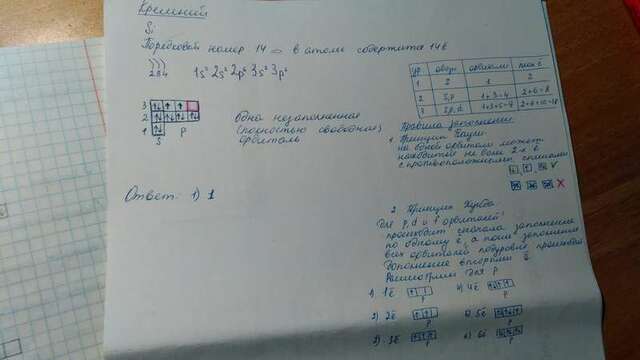 Кремний
Si
Порядковый номер 14 => в атоме содержится 14ē
)))
2 8 4
1s² 2s² 2p⁶ 3s² 3p²
3 ↑↓ ↑ ↑
2 ↑↓ ↑↓ ↑↓ ↑↓
1 ↑↓
s p
одна незаполненная
(полностью свободная)
орбиталь
Ответ: 1) 1
ур. обозн орбитали max ē
1 s 1 2
2 s,p 1+3=4 2+6=8
3 s,p,d 1+3+5=9 2+6+10=18
Правила заполнения
1 Принцип Паули:
на одной орбитали может
находиться не более 2-х ē
с противоположными спинами
V
X
2 Принцип Хунда.
Для p, d и f орбиталей:
происходит сначала заполнение
по одному ē, а после заполнения
всех орбиталей подуровня происходит
дополнение вторыми ē
Рассмотрим для p
1) 1ē ↑ p 4) 4ē ↑↓ ↑ ↑ p
2) 2ē ↑ ↑ p 5) 5ē ↑↓ ↑↓ ↑ p
3) 3ē ↑ ↑ ↑ p 6) 6ē ↑↓ ↑↓ ↑↓ p